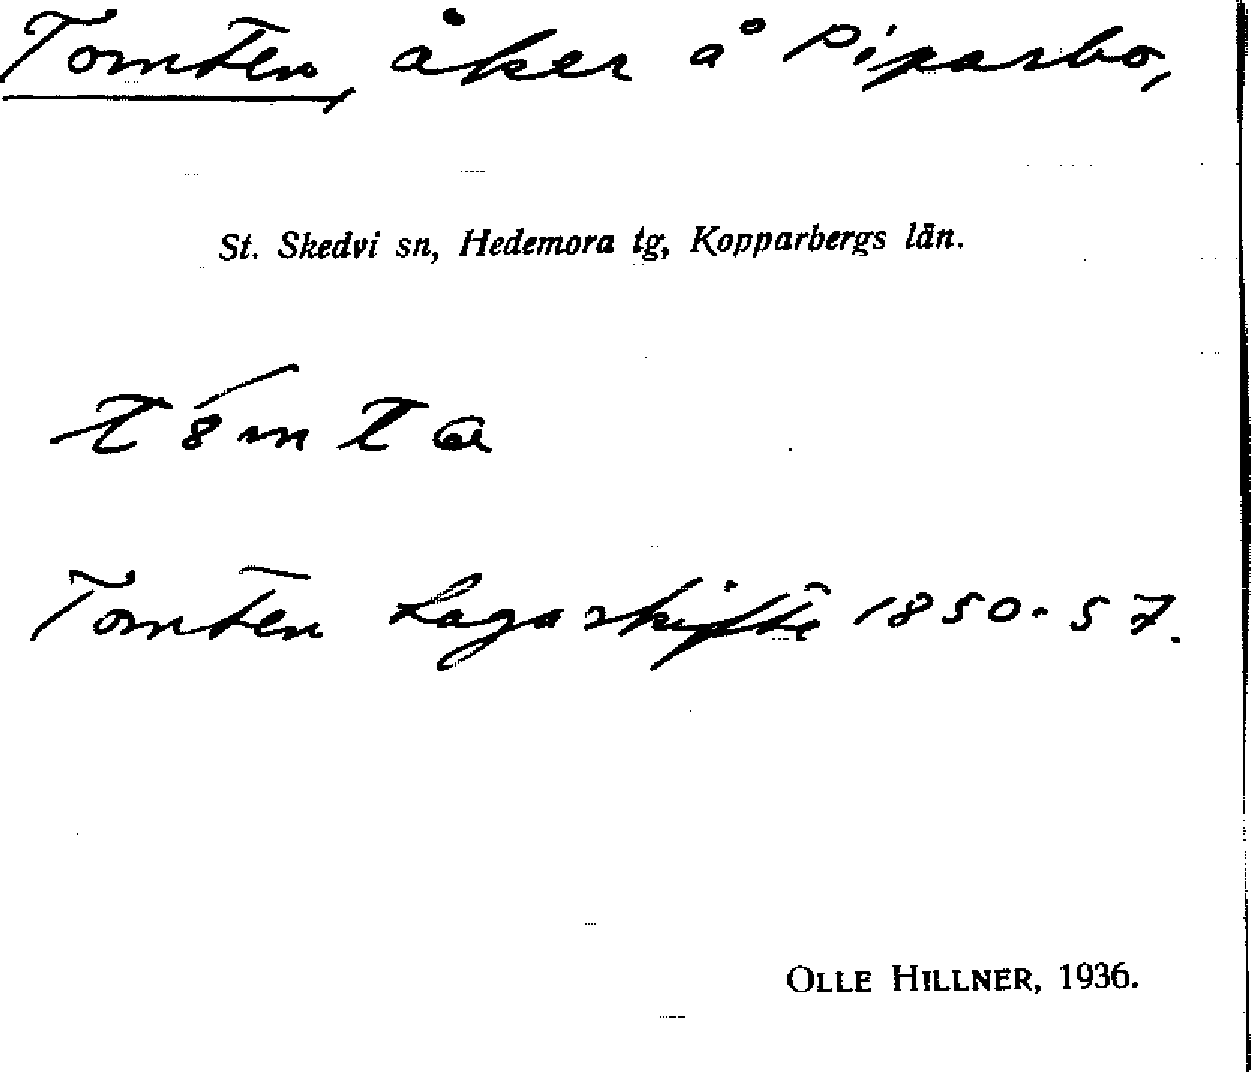 Tomten, åker å Piparsbo,
St. Skedvi sn, Hedemora tg, Kopparbergs län.
Tomten Laga skifte 1850-57.
OLLE HILLNER, 1936.